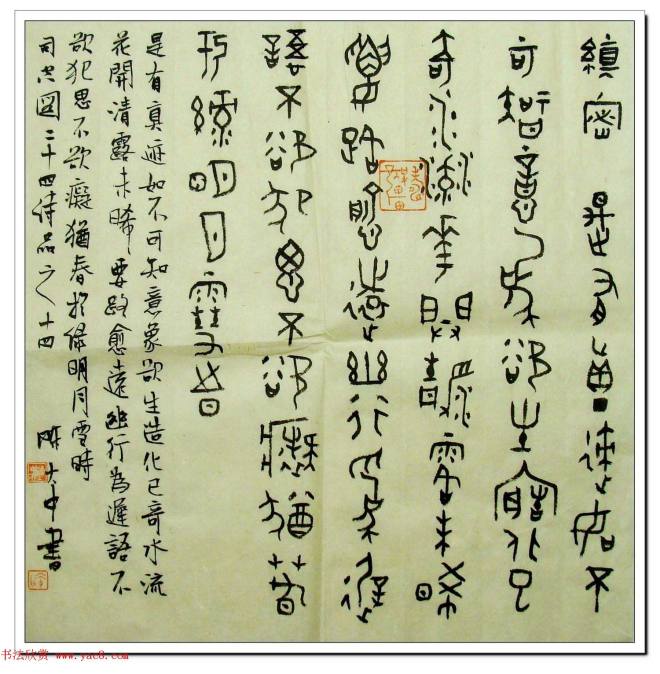 縝密 是有真迹如不
可知意象欲生造化已
奇水流花開清露未晞
要路愈遠幽行為遲
語不欲犯思不欲癡猶春
於綠明月雪時
是有真迹如不可知意象欲生造化已奇水流
花開清露未晞要路愈遠幽行為遲語不
欲犯思不欲癡猶春於綠明月雪時
司空圖二十四詩品之十四 陈大中書
书法欣赏 www.yac8.com